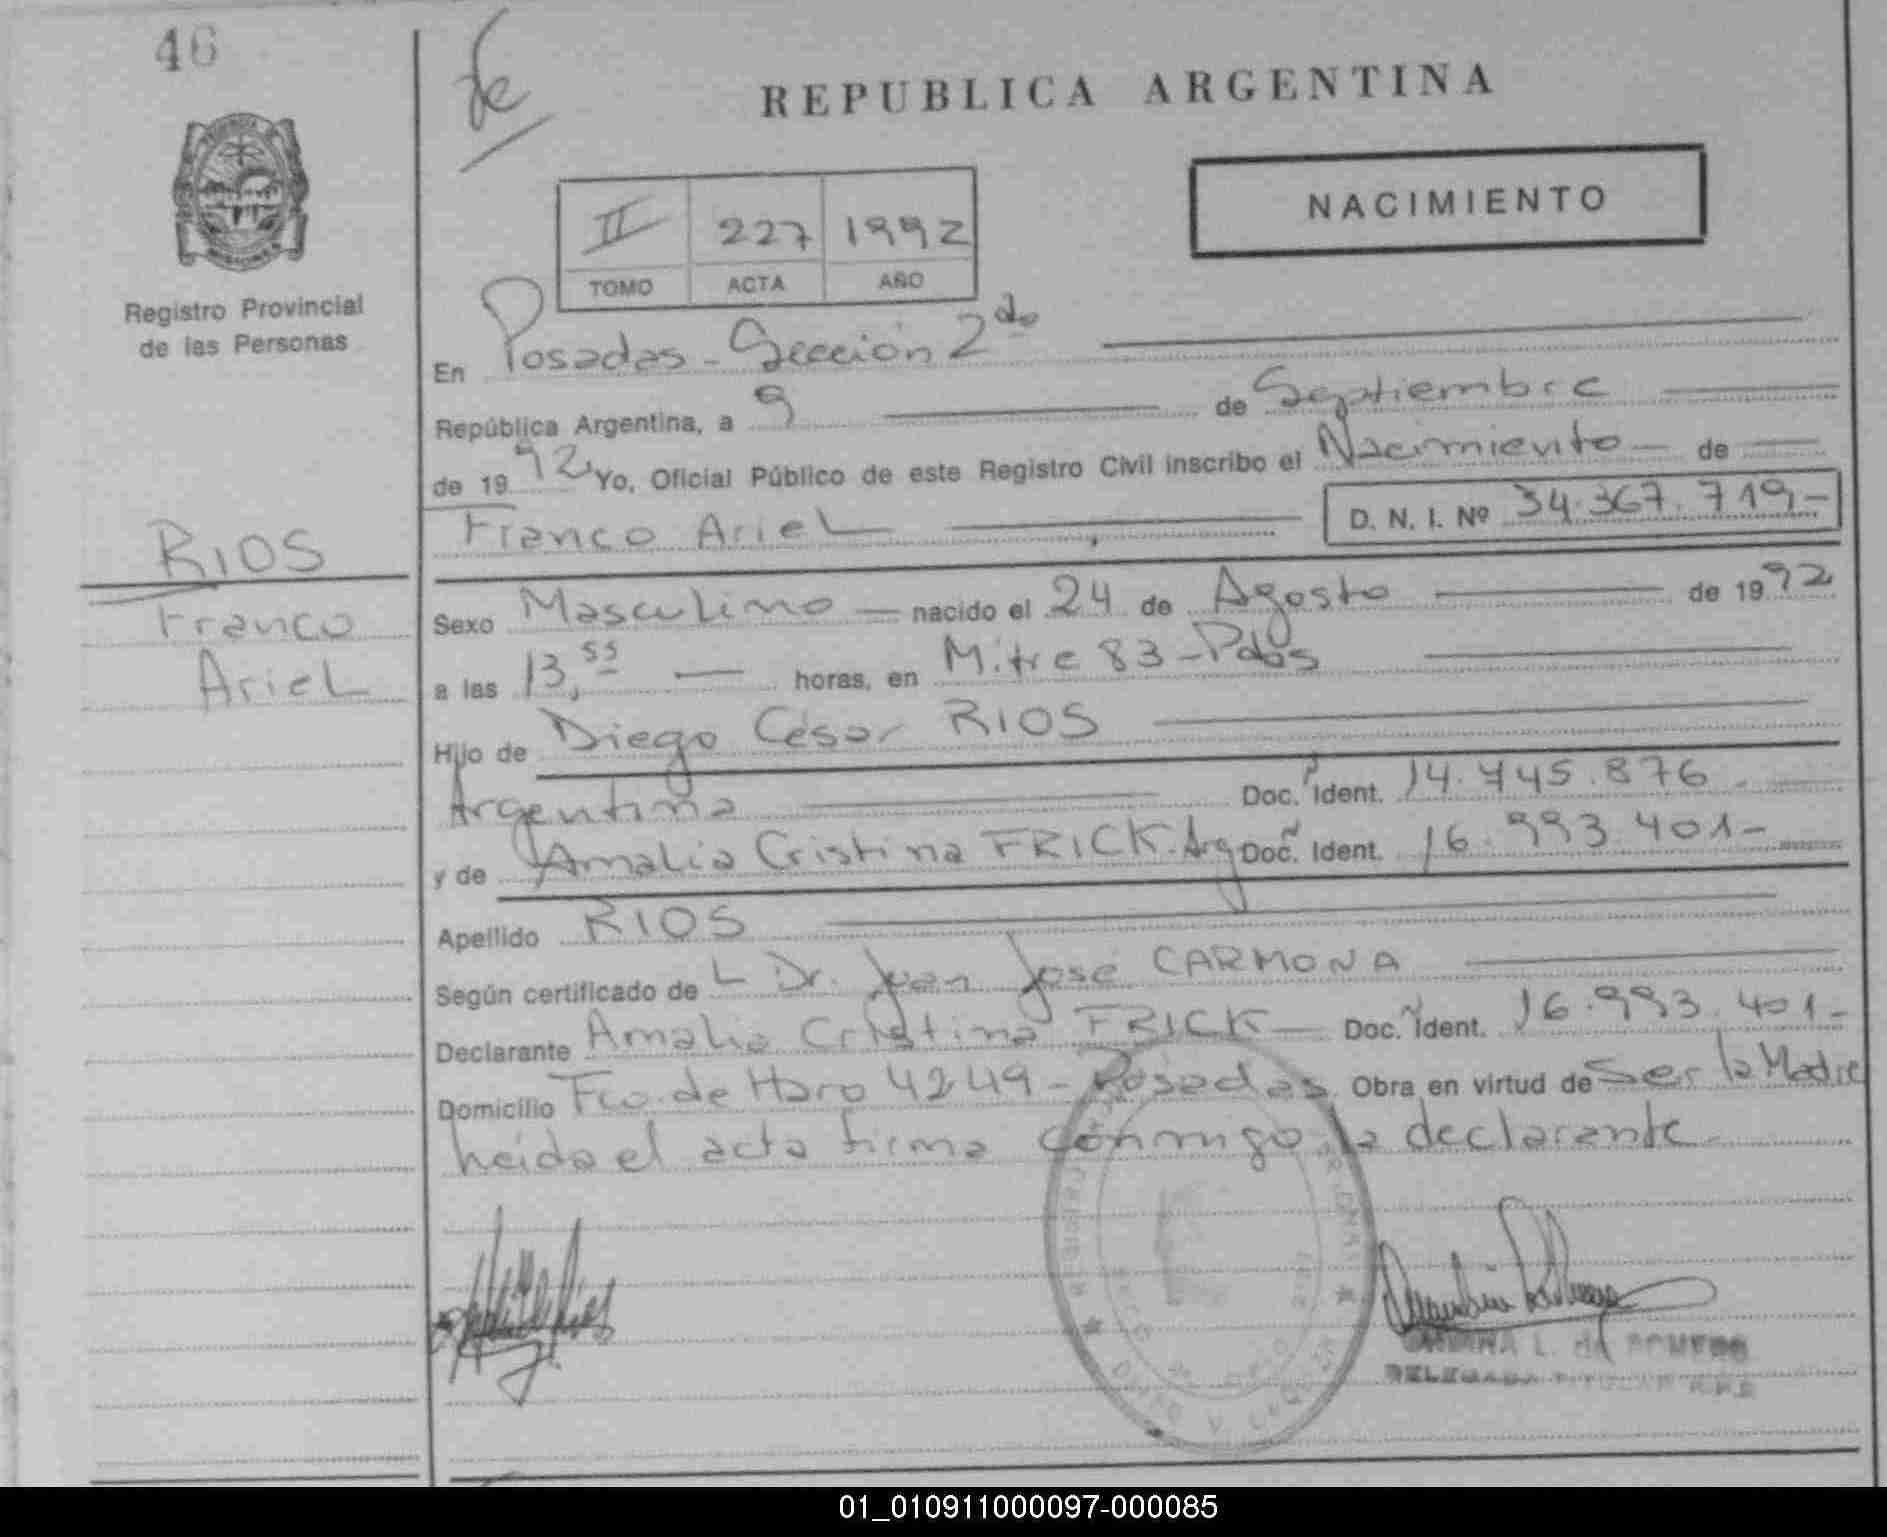 46
REPUBLICA ARGENTINA
NACIMIENTO
II 227 1992
TOMO ACTA AÑO
Registro Provincial
de las Personas
En Posadas - Sección 2da
República Argentina, a 9 de Septiembre
de 1992 Yo, Oficial Público de este Registro Civil inscribo el Nacimiento de
Franco Ariel D. N. I. Nº 34.367.719-
RIOS
Franco
Ariel
Sexo Masculino nacido el 24 de Agosto de 1992
a las 13,55 horas, en Mitre 83 - Pdas
Hijo de Diego César RIOS
Argentina Doc. Ident. 14.745.876 -
y de Amalia Cristina FRICK - Arg Doc. Ident. 16.993.401-
Apellido RIOS
Según certificado de L Dr. Juan José CARMONA
Declarante Amalia Cristina FRICK Doc. Ident. 16.993.401-
Domicilio Fco. de Haro 4249 - Posadas Obra en virtud de Ser la Madre
Leida el acta firma conmigo la declarante -
01_010911000097-000085